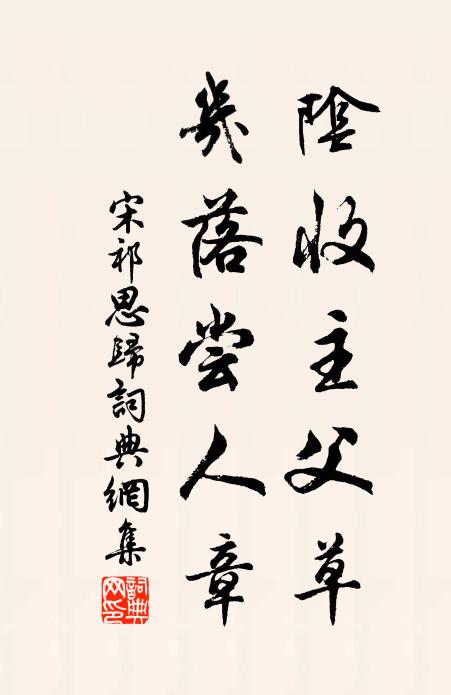 陰收主父草
幾落嘗人章
宋祁思歸詞典網集
詞典
网印